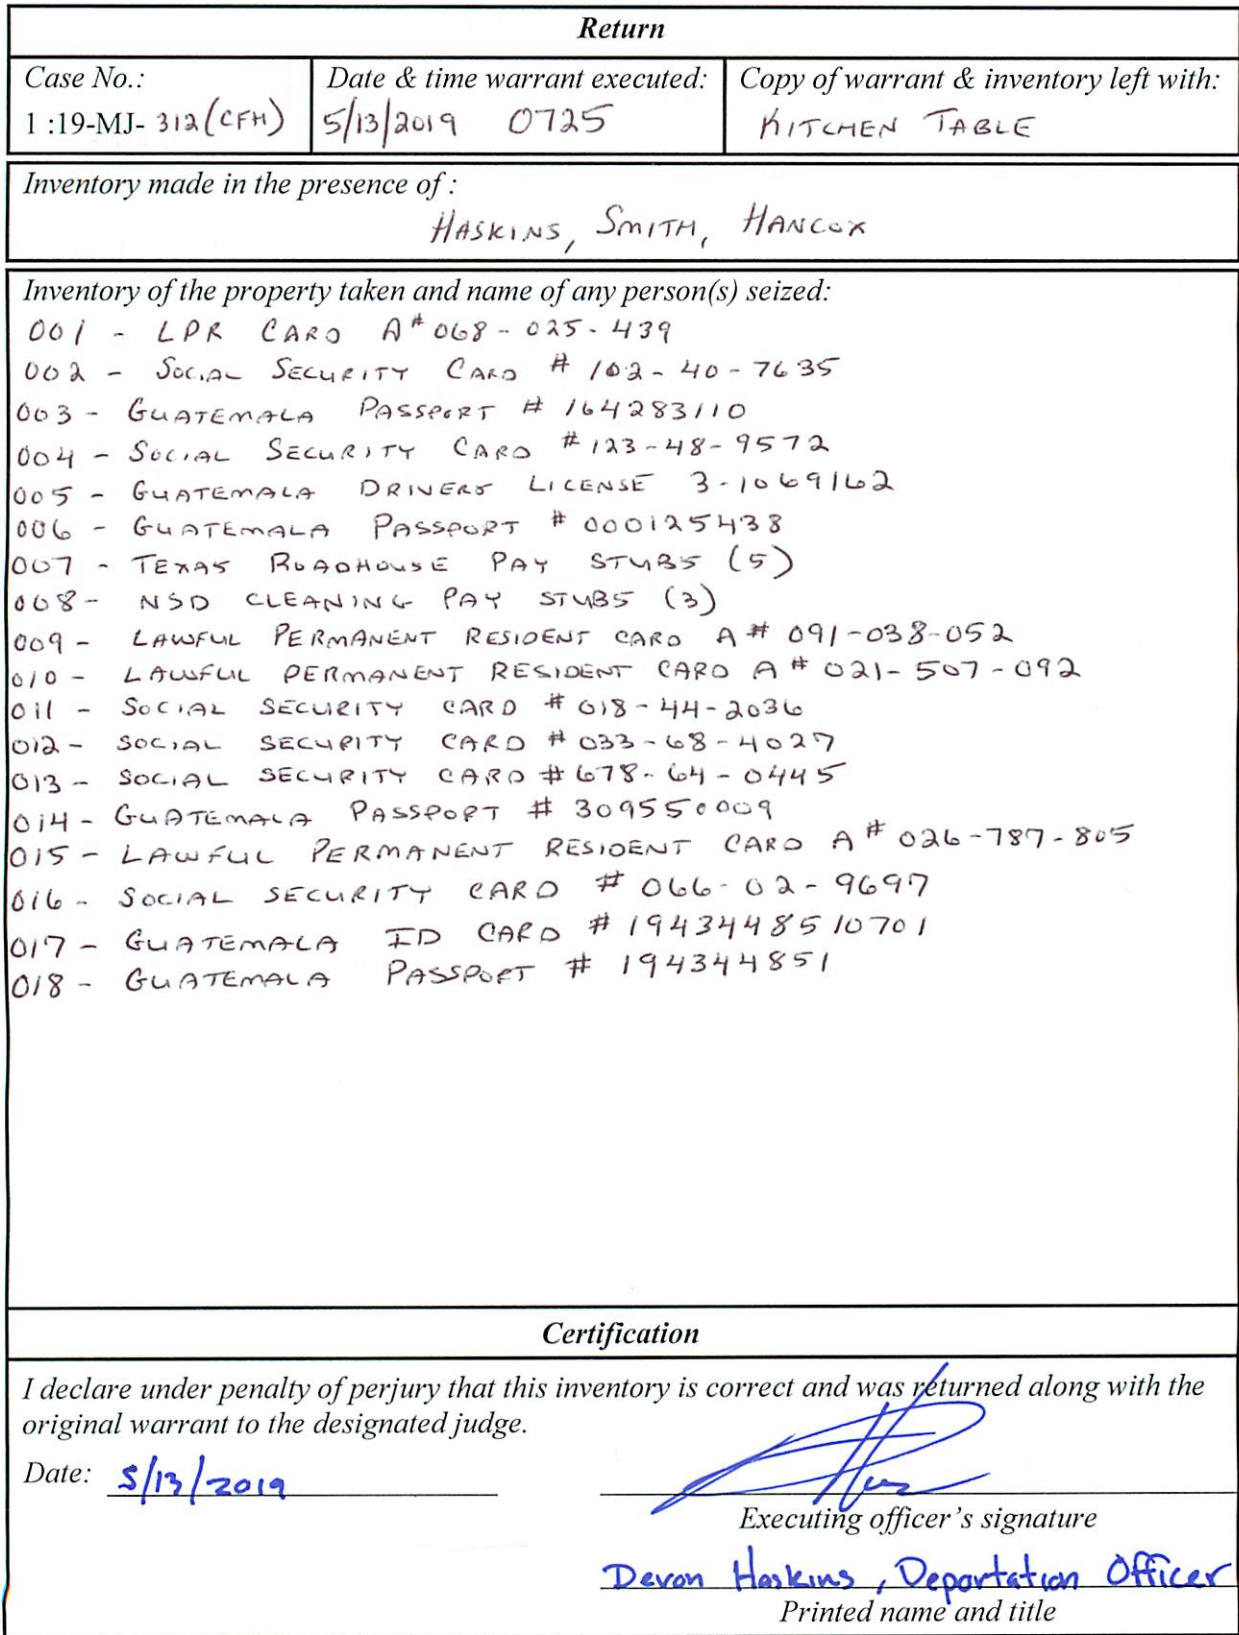 Return
Case No.:
1 :19-MJ- 312(CFH)
Date & time warrant executed:
5/13/2019 0725
Copy of warrant & inventory left with:
KITCHEN TABLE
Inventory made in the presence of :
HASKINS, SMITH, HANCOX
Inventory of the property taken and name of any person(s) seized:
001 - LPR CARD A# 068-025-439
002 - SOCIAL SECURITY CARD # 102-40-7635
003 - GUATEMALA PASSPORT # 164283110
004 - SOCIAL SECURITY CARD # 123-48-9572
005 - GUATEMALA DRIVERS LICENSE 3-1069162
006 - GUATEMALA PASSPORT # 000125438
007 - TEXAS ROADHOUSE PAY STUBS (5)
008 - NSD CLEANING PAY STUBS (3)
009 - LAWFUL PERMANENT RESIDENT CARD A# 091-038-052
010 - LAWFUL PERMANENT RESIDENT CARD A# 021-507-092
011 - SOCIAL SECURITY CARD # 018-44-2036
012 - SOCIAL SECURITY CARD # 033-68-4027
013 - SOCIAL SECURITY CARD # 678-64-0445
014 - GUATEMALA PASSPORT # 309550009
015 - LAWFUL PERMANENT RESIDENT CARD A# 026-787-805
016 - SOCIAL SECURITY CARD # 066-02-9697
017 - GUATEMALA ID CARD # 1943448510701
018 - GUATEMALA PASSPORT # 194344851
Certification
I declare under penalty of perjury that this inventory is correct and was returned along with the
original warrant to the designated judge.
Date: 5/13/2019
Executing officer's signature
Devon Haskins, Deportation Officer
Printed name and title